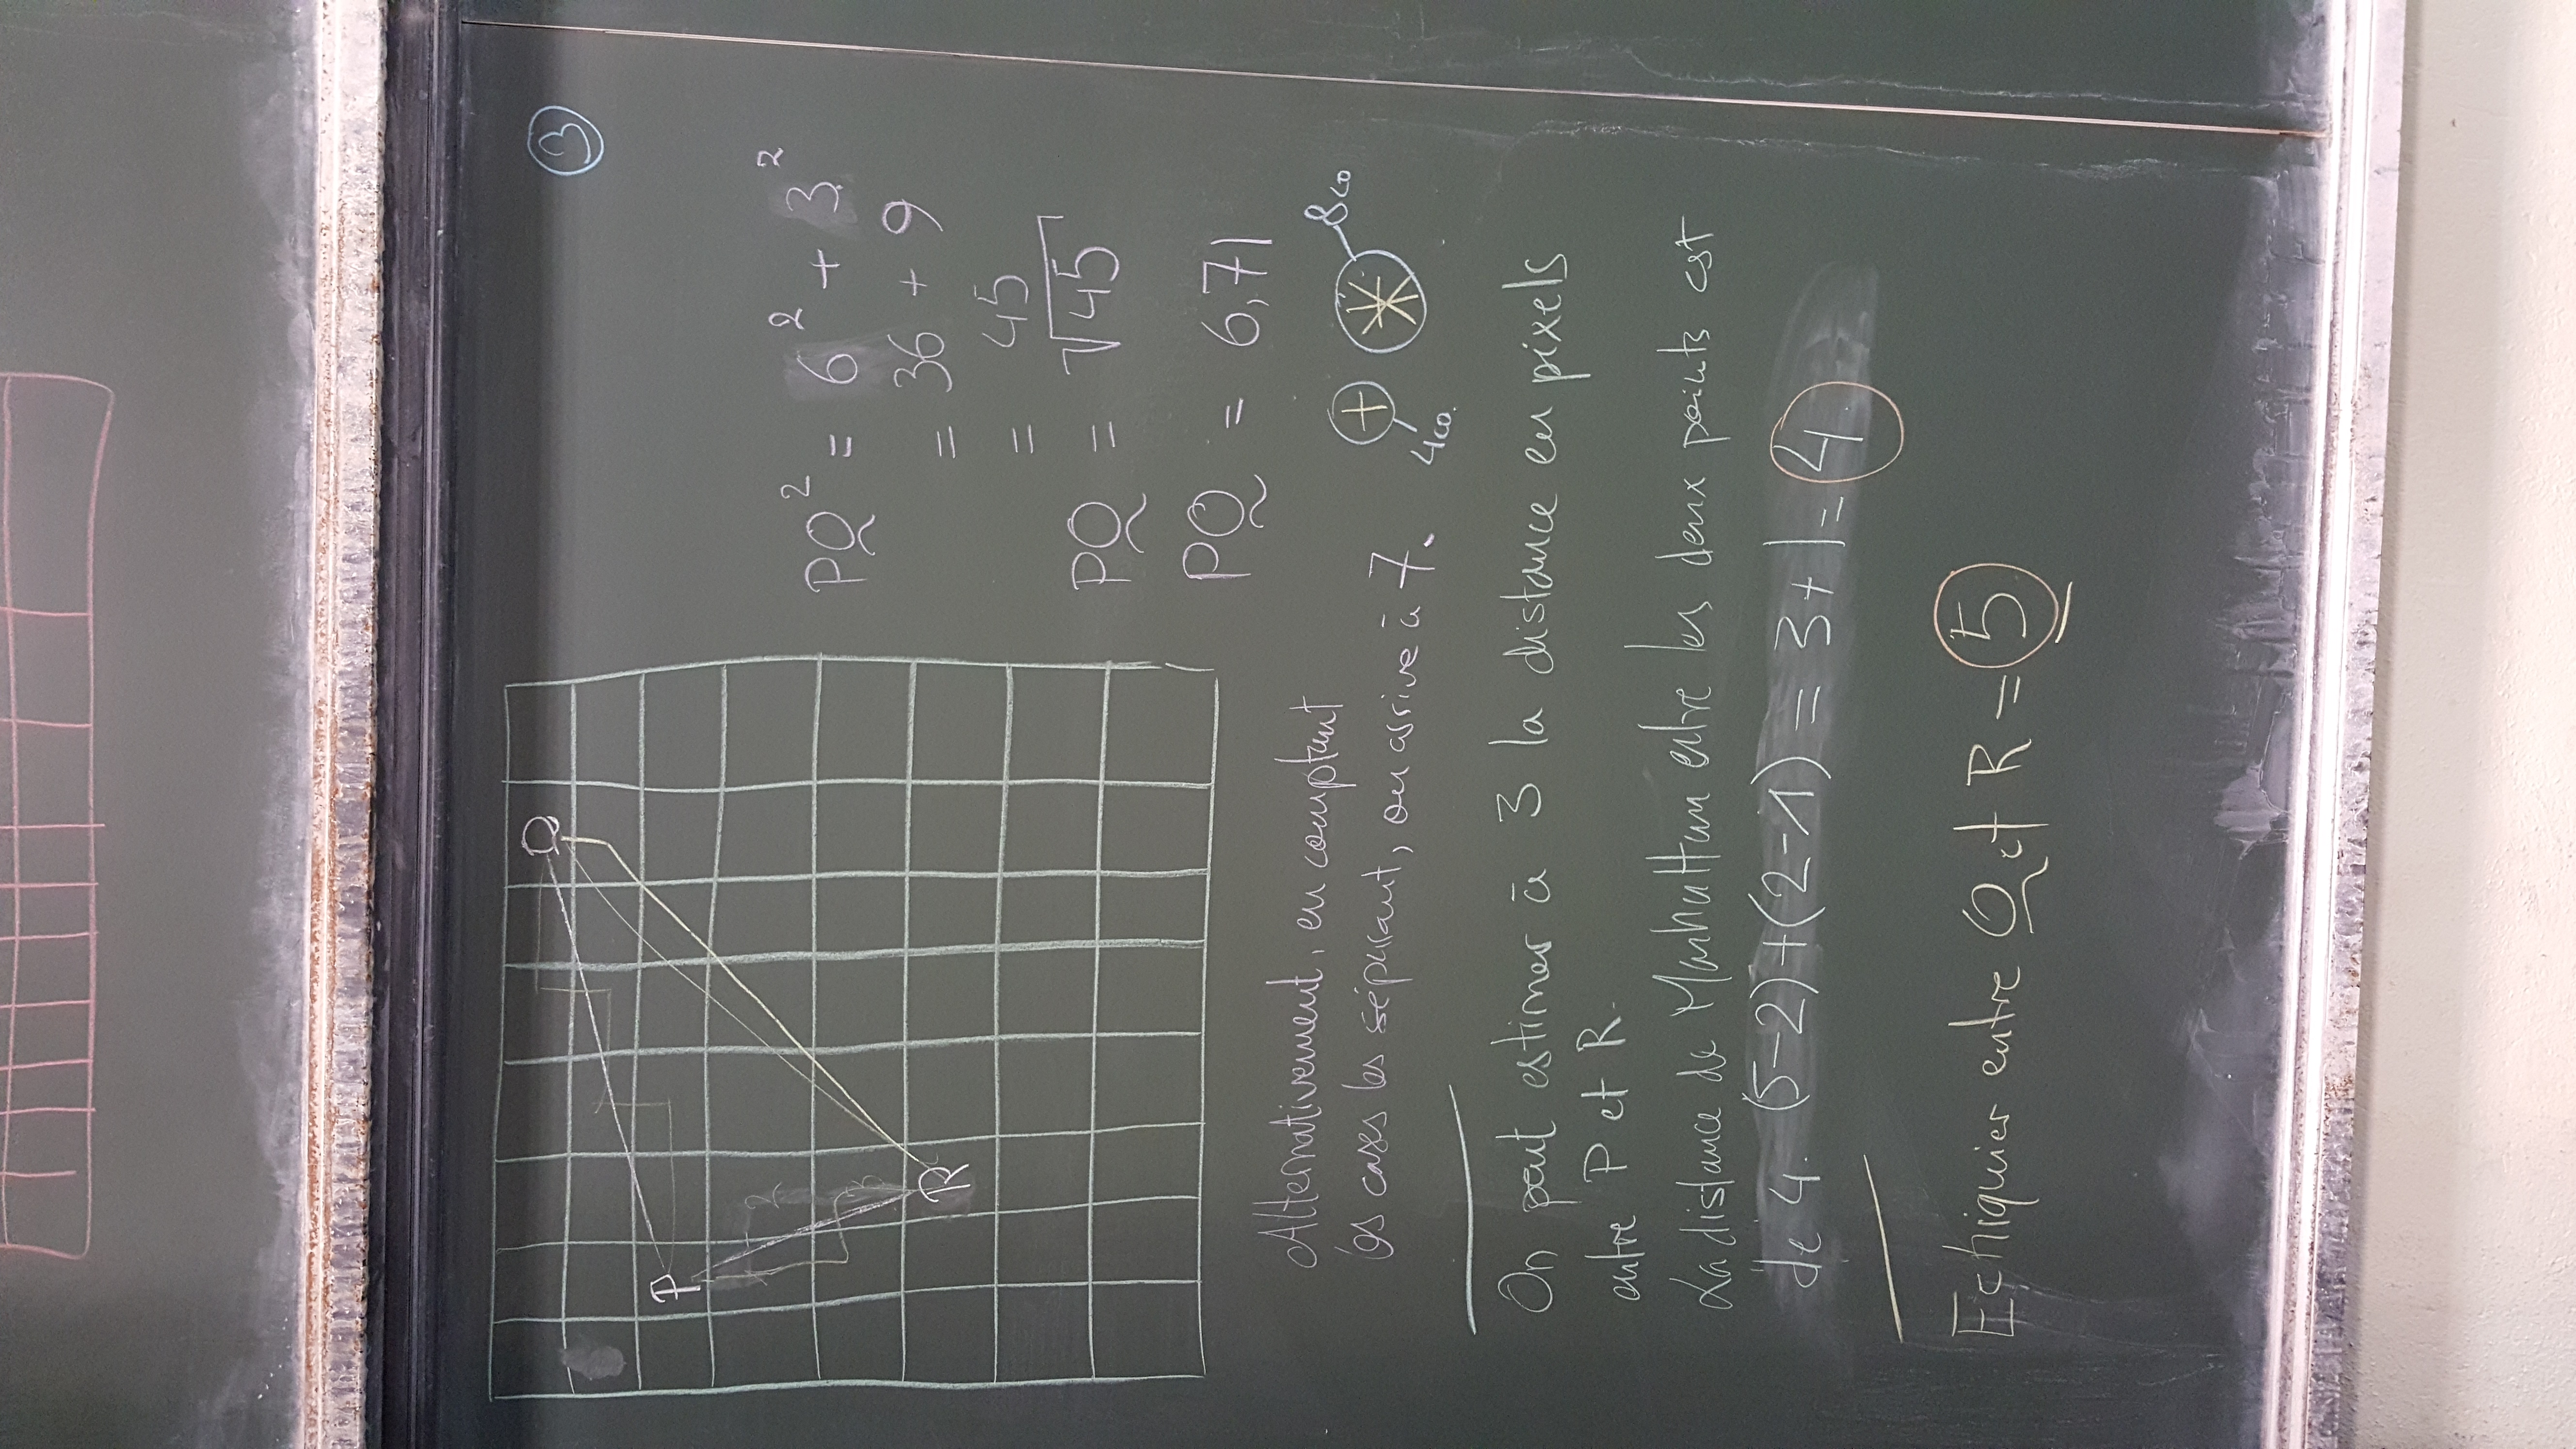 3
Q
P
2
3
R
PQ² = 6² + 3²
= 36 + 9
= 45
PQ = √45
PQ = 6,71
Alternativement, en comptant
les cases les séparant, on arrive à 7.
8co
4co.
On peut estimer à 3 la distance en pixels
entre P et R.
La distance de Manhattan entre les deux points est
de 4. (5-2)+(2-1) = 3+1 = 4.
Echiquier entre Q et R = 5